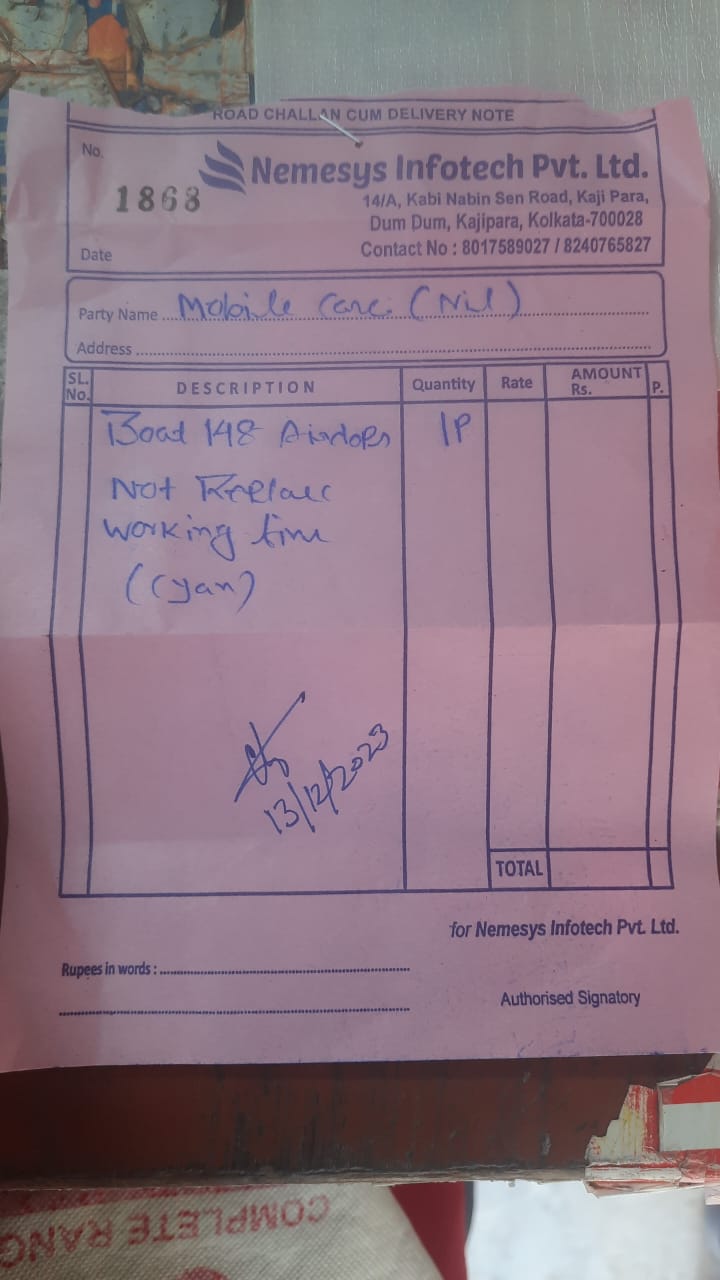 ROAD CHALLAN CUM DELIVERY NOTE
No. 1868
Nemesys Infotech Pvt. Ltd.
14/A, Kabi Nabin Sen Road, Kaji Para,
Dum Dum, Kajipara, Kolkata-700028
Date
Contact No : 8017589027 / 8240765827
Party Name Mobile Care (Nil)
Address
SL. No. DESCRIPTION Quantity Rate AMOUNT Rs. P.
Boat 148 Airdops 1P
Not Replace
working time
(Cyan)
13/12/2023
TOTAL
for Nemesys Infotech Pvt. Ltd.
Rupees in words :
Authorised Signatory
COMPLETE RANG